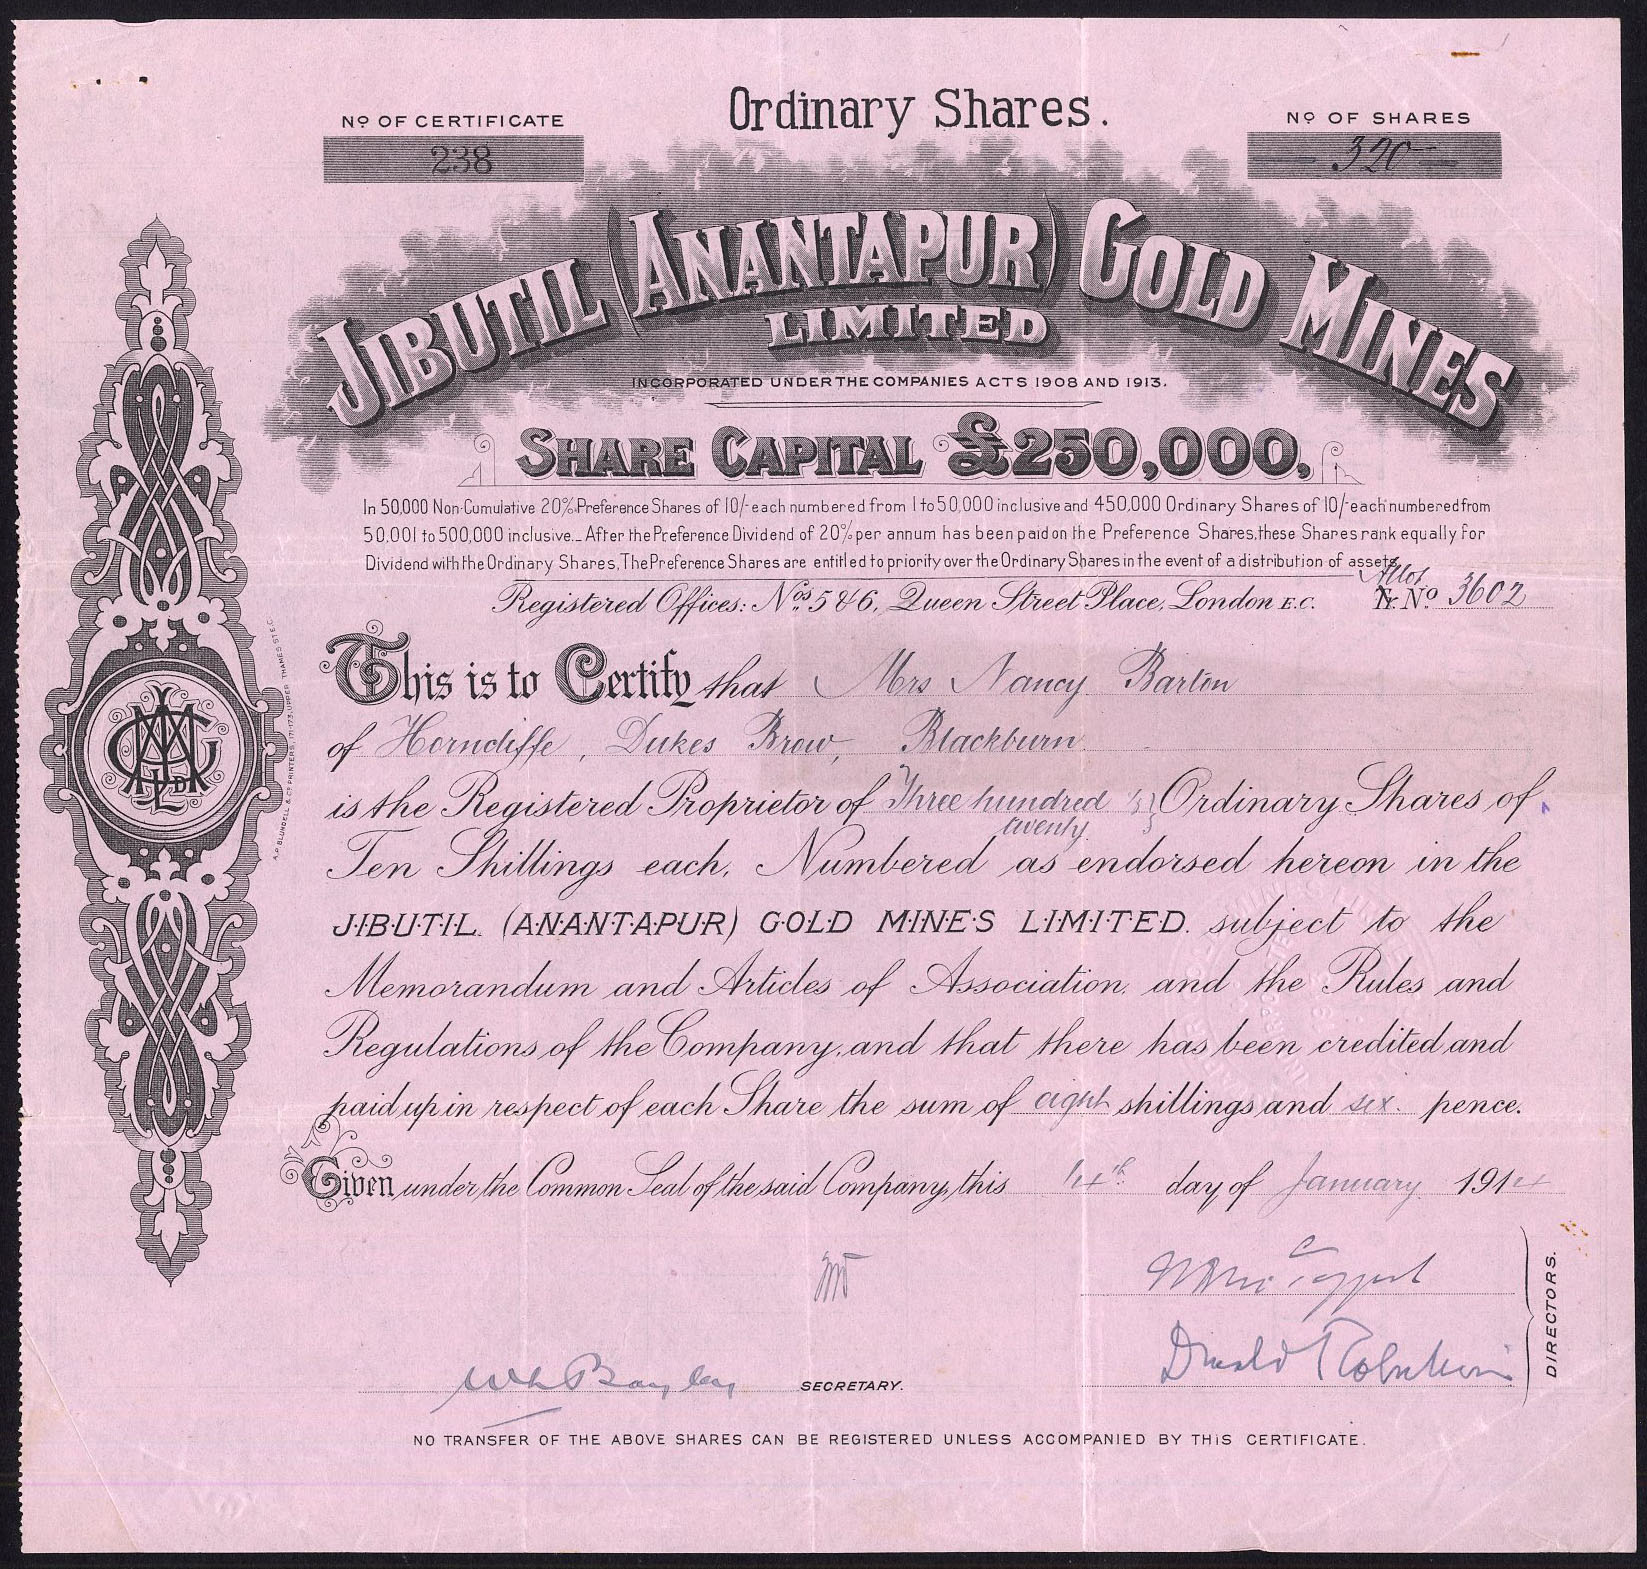 Ordinary Shares.
No OF CERTIFICATE
238
No OF SHARES
320
JIBUTIL (ANANTAPUR) GOLD MINES
LIMITED
INCORPORATED UNDER THE COMPANIES ACTS 1908 AND 1913.
SHARE CAPITAL £250,000,
In 50,000 Non-Cumulative 20% Preference Shares of 10/- each numbered from 1 to 50,000 inclusive and 450,000 Ordinary Shares of 10/- each numbered from
50,001 to 500,000 inclusive. After the Preference Dividend of 20% per annum has been paid on the Preference Shares, these Shares rank equally for
Dividend with the Ordinary Shares, The Preference Shares are entitled to priority over the Ordinary Shares in the event of a distribution of assets.
Registered Offices: Nos. 5 & 6, Queen Street Place, London E.C.
Allot
Tr. No 3602
This is to Certify that Mrs Nancy Barton
of Horncliffe, Dukes Brow, Blackburn
is the Registered Proprietor of Three hundred & Ordinary Shares of
twenty
Ten Shillings each, Numbered as endorsed hereon in the
J.I.B.U.T.I.L. (A.N.A.N.T.A.P.U.R) G.O.L.D M.I.N.E.S L.I.M.I.T.E.D. subject to the
Memorandum and Articles of Association, and the Rules and
Regulations of the Company, and that there has been credited and
paid up in respect of each Share the sum of eight shillings and six pence.
Given under the Common Seal of the said Company, this 14th day of January 1914
SECRETARY.
DIRECTORS.
NO TRANSFER OF THE ABOVE SHARES CAN BE REGISTERED UNLESS ACCOMPANIED BY THIS CERTIFICATE.
A.P. BLUNDELL & CO PRINTERS, 171-173, UPPER THAMES ST E.C.